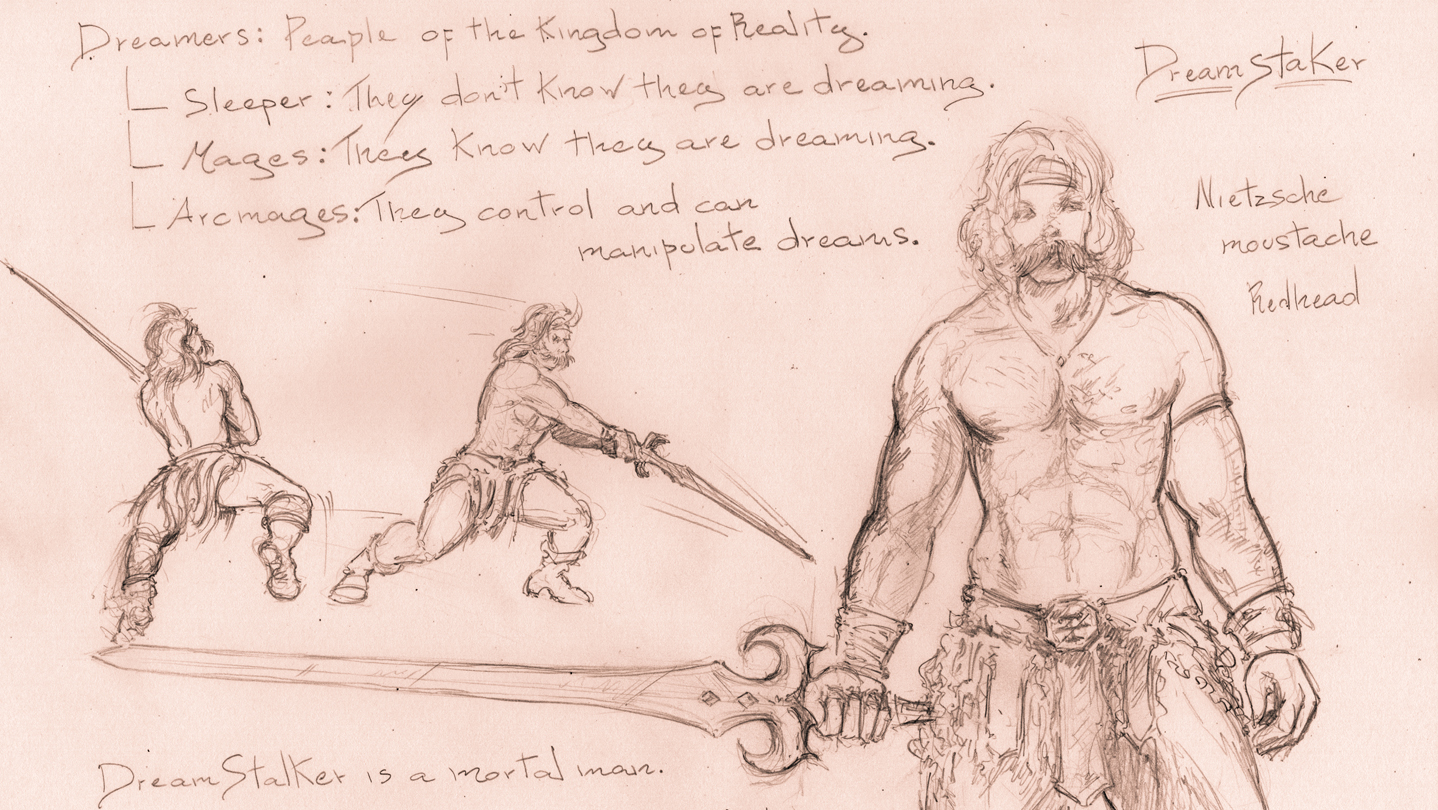 Dreamers: Peaple of the Kingdom of Reality.
Sleeper: They don't know they are dreaming.
Mages: They know they are dreaming.
Arcmages: They control and can
manipulate dreams.
DreamStaKer
Nietzsche
moustache
Redhead
DreamStalKer is a mortal man.